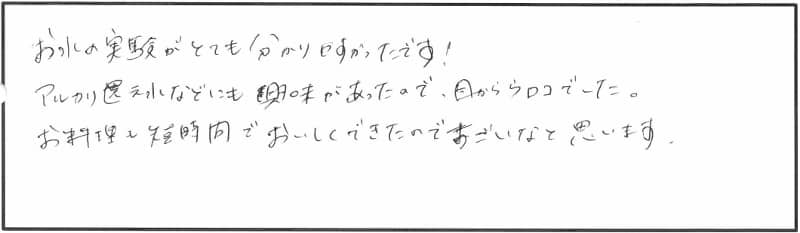 お水の実験がとても分かりやすかったです！
アルカリ還元水などにも興味があったので、目からウロコでした。
お料理も短時間でおいしくできたのですごいなと思います.